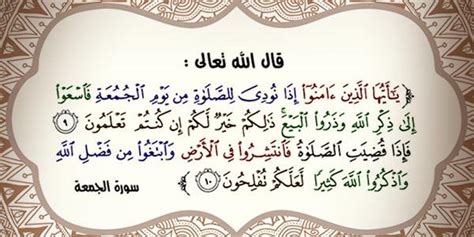 قال الله تعالى :
﴿ يَٰٓأَيُّهَا ٱلَّذِينَ ءَامَنُوٓاْ إِذَا نُودِيَ لِلصَّلَوٰةِ مِن يَوۡمِ ٱلۡجُمُعَةِ فَٱسۡعَوۡاْ
إِلَىٰ ذِكۡرِ ٱللَّهِ وَذَرُواْ ٱلۡبَيۡعَۚ ذَٰلِكُمۡ خَيۡرٞ لَّكُمۡ إِن كُنتُمۡ تَعۡلَمُونَ ٩
فَإِذَا قُضِيَتِ ٱلصَّلَوٰةُ فَٱنتَشِرُواْ فِي ٱلۡأَرۡضِ وَٱبۡتَغُواْ مِن فَضۡلِ ٱللَّهِ
وَٱذۡكُرُواْ ٱللَّهَ كَثِيرٗا لَّعَلَّكُمۡ تُفۡلِحُونَ ١٠ ﴾ سورة الجمعة